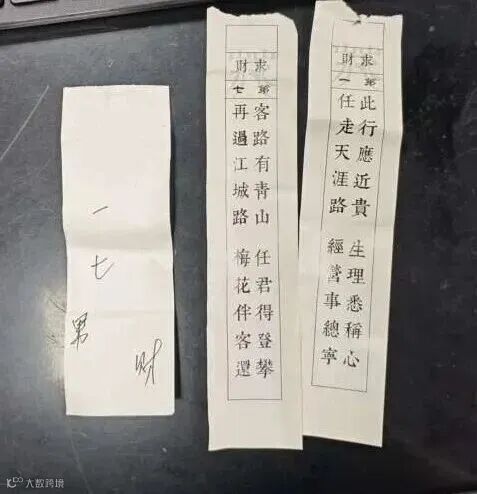 求財
第一
此行應近貴 生理悉稱心
任走天涯路 經營事總寧
求財
第七
客路有青山 任君得登攀
再過江城路 梅花伴客還
一
七
男
财
大数跨境